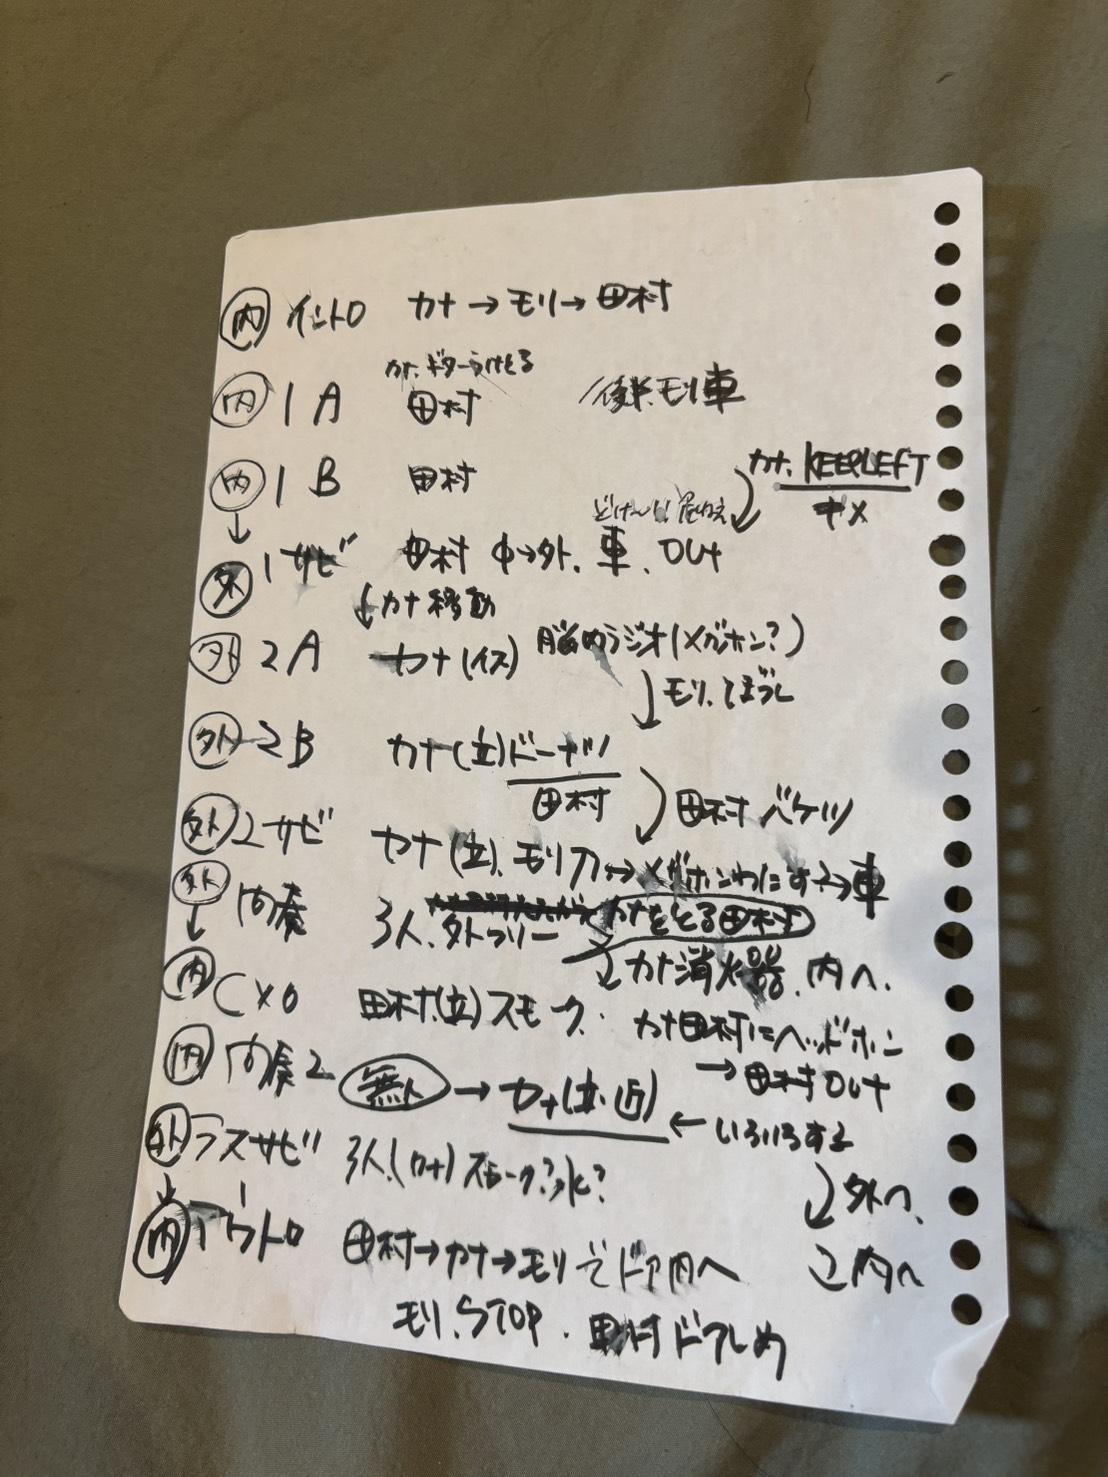 内 イントロ カナ→モリ→田村
カナ、ギターうけとる
内 1A 田村 /後半、モリ車
内 1B 田村
カナ、KEEPLEFT
中メ
↓
外 1サビ 田村 中→外、車、OUT
↓カナ移動
外 2A カナ(イス) 脳内ラジオ(メガホン?)
↓モリ、
外 2B カナ(立)ドーナツ
田村
↓田村バケツ
外 2サビ カナ(立)、モリ刀→メガホンわたす→車
外 間奏 3人、外フリー カナをとる田村
↓
↓カナ消火器、内へ、
内 Cメロ 田村(立)スモーク、カナ田村にヘッドホン
→田村OUT
内 間奏2 無人→カナ(立・近)
←いろいろする
外 ラスサビ 3人、(カナ)スモーク?水?
↓外へ、
↓
内 アウトロ 田村→カナ→モリでドア内へ
内へ
モリ、STOP、田村ドアしめ